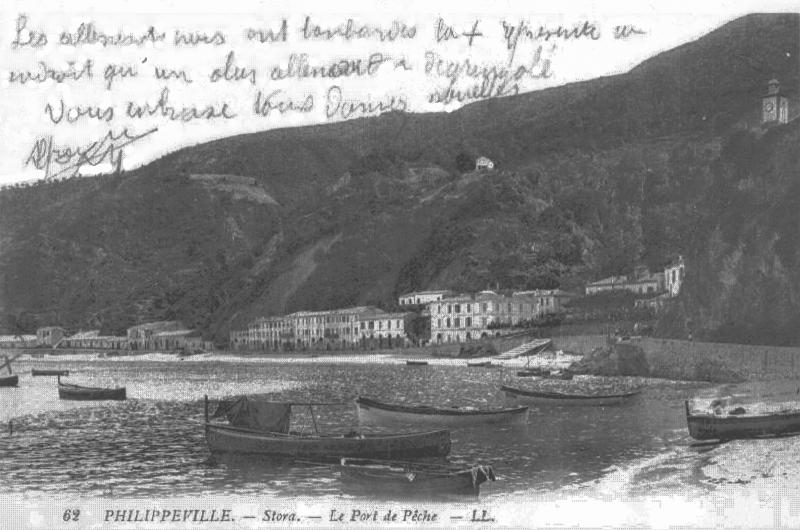 Les allemands nous ont bombardés la + représente un
endroit qu'un obus allemand a dégringolé
Vous embrasse tous Donnez nouvelles
62 PHILIPPEVILLE. — Stora. — Le Port de Pêche — LL.